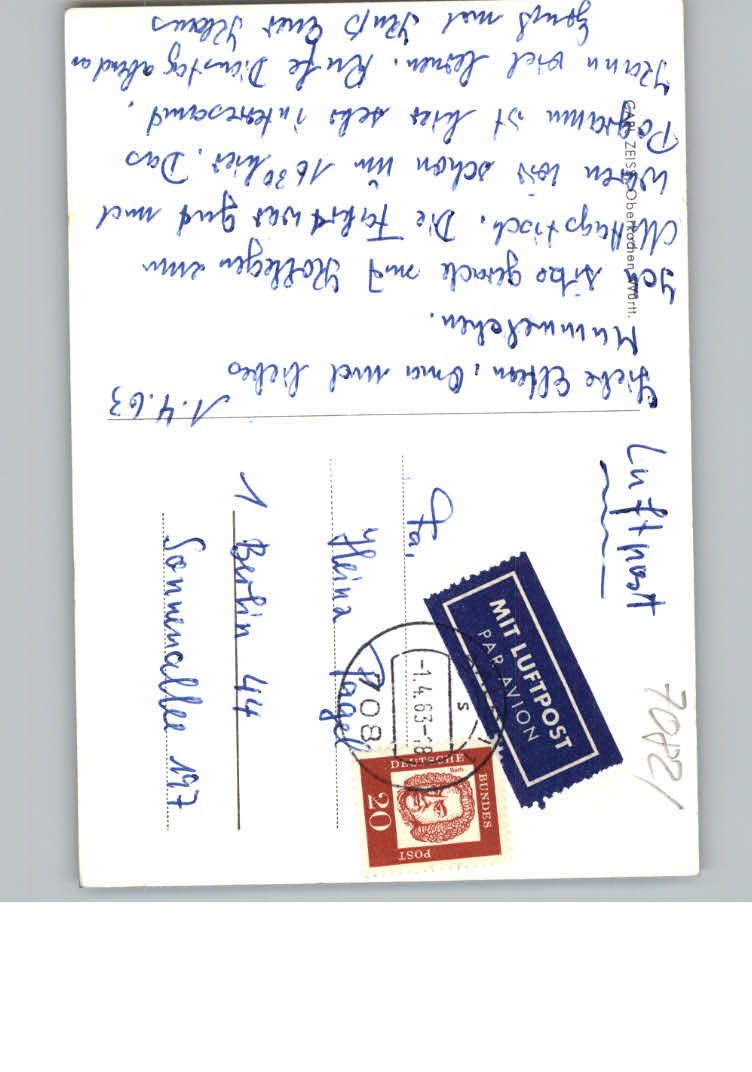 1.4.63
Liebe Eltern, Oma und liebes
Mummelchen.
Ich sitze gerade mit Kollegen zum
Mittagstisch. Die Fahrt war gut und
waren wir schon um 16³⁰ hier. Das
Programm ist hier sehr interesand.
Kann viel lernen. Rufe Dienstag abend an
Gruß und Kuß Euer Klaus
CARL ZEISS, Oberkochen/Württ.
Luftpost
MIT LUFTPOST
PAR AVION
Fa.
Heinz Pagel
1 Berlin 44
Sonnenallee 197
-1.4.63-18
708
S
DEUTSCHE
BUNDES
POST
20
Bach